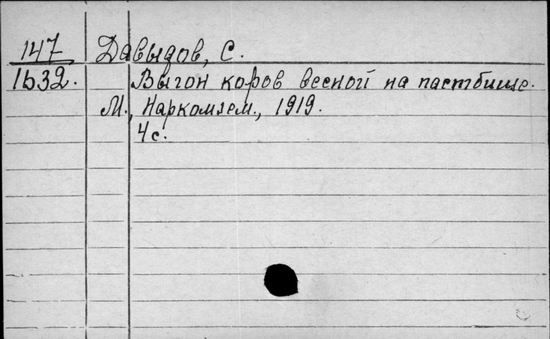 147 Давыдов, С.
1532. Выгон коров весной на пастбище.
М., Наркомзем., 1919.
4с.